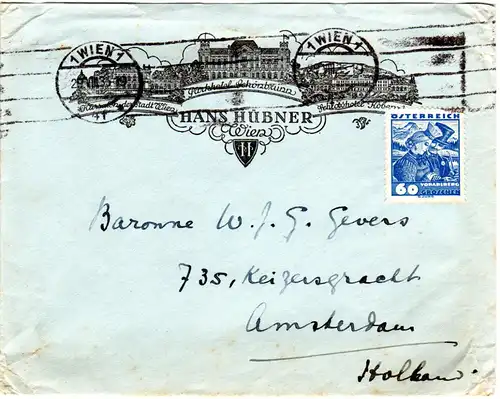 1 WIEN 1
1 WIEN 1
Parkhotel Schönbrunn
Schlosshotel Kobenzl
HANS HÜBNER
Wien
H
ÖSTERREICH
VORARLBERG
60
GROSCHEN
Baronne W. J. G. Gevers
735, Keizersgracht
Amsterdam
Holland